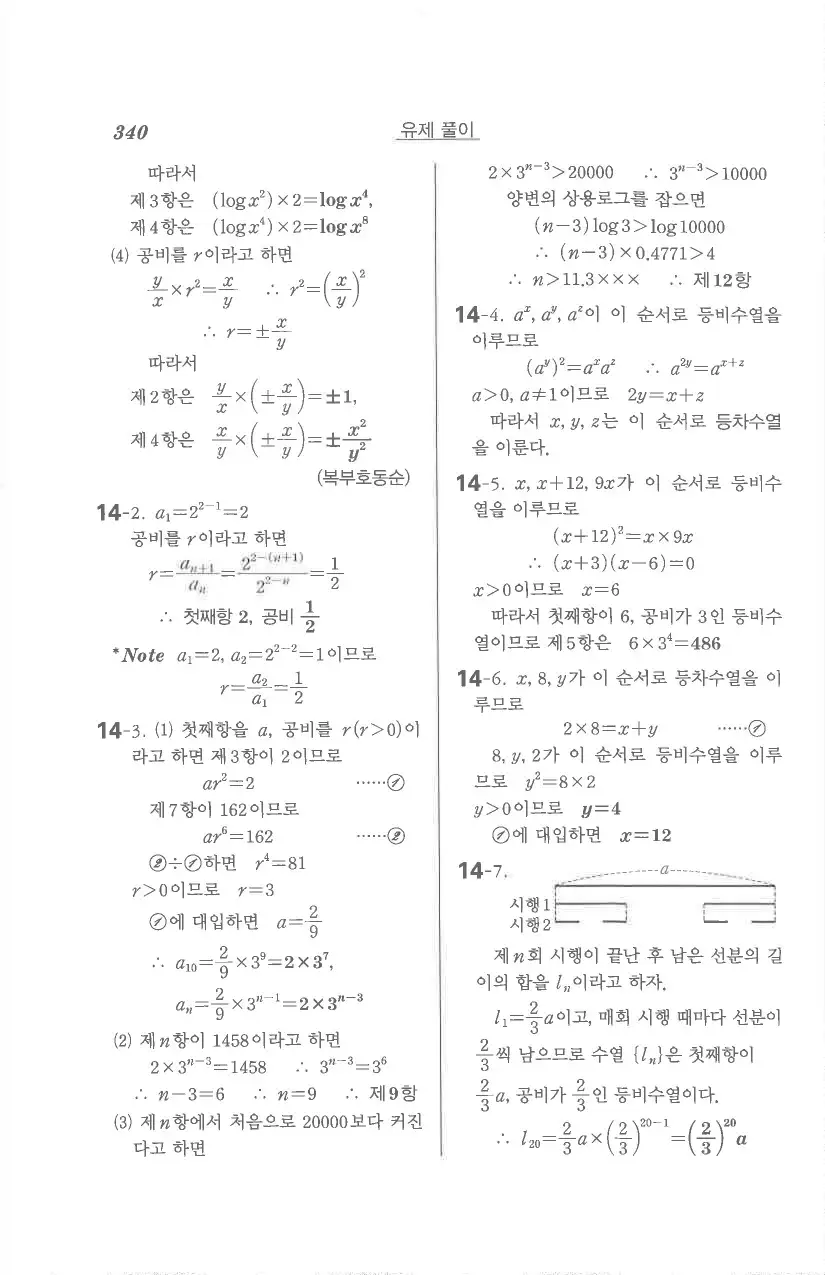 340 유제 풀이
따라서
제3항은 (log x²)×2=log x⁴,
제4항은 (log x⁴)×2=log x⁸
(4) 공비를 r이라고 하면
y/x×r²=x/y ∴ r²=(x/y)²
∴ r=±x/y
따라서
제2항은 y/x×(±x/y)=±1,
제4항은 x/y×(±x/y)=±x²/y²
(복부호동순)
14-2. a₁=2²⁻¹=2
공비를 r이라고 하면
r=aₙ₊₁/aₙ=2^(2-(n+1))/2^(2-n)=1/2
∴ 첫째항 2, 공비 1/2
*Note a₁=2, a₂=2²⁻²=1이므로
r=a₂/a₁=1/2
14-3. (1) 첫째항을 a, 공비를 r(r>0)이
라고 하면 제3항이 2이므로
ar²=2 ⋯⋯①
제7항이 162이므로
ar⁶=162 ⋯⋯②
②÷①하면 r⁴=81
r>0이므로 r=3
①에 대입하면 a=2/9
∴ a₁₀=2/9×3⁹=2×3⁷,
aₙ=2/9×3ⁿ⁻¹=2×3ⁿ⁻³
(2) 제n항이 1458이라고 하면
2×3ⁿ⁻³=1458 ∴ 3ⁿ⁻³=3⁶
∴ n-3=6 ∴ n=9 ∴ 제9항
(3) 제n항에서 처음으로 20000보다 커진
다고 하면
2×3ⁿ⁻³>20000 ∴ 3ⁿ⁻³>10000
양변의 상용로그를 잡으면
(n-3)log3>log10000
∴ (n-3)×0.4771>4
∴ n>11.3××× ∴ 제12항
14-4. aˣ, aʸ, aᶻ이 이 순서로 등비수열을
이루므로
(aʸ)²=aˣaᶻ ∴ a²ʸ=aˣ⁺ᶻ
a>0, a≠1이므로 2y=x+z
따라서 x, y, z는 이 순서로 등차수열
을 이룬다.
14-5. x, x+12, 9x가 이 순서로 등비수
열을 이루므로
(x+12)²=x×9x
∴ (x+3)(x-6)=0
x>0이므로 x=6
따라서 첫째항이 6, 공비가 3인 등비수
열이므로 제5항은 6×3⁴=486
14-6. x, 8, y가 이 순서로 등차수열을 이
루므로
2×8=x+y ⋯⋯①
8, y, 2가 이 순서로 등비수열을 이루
므로 y²=8×2
y>0이므로 y=4
①에 대입하면 x=12
14-7.
a
시행1
시행2
제n회 시행이 끝난 후 남은 선분의 길
이의 합을 lₙ이라고 하자.
l₁=2/3a이고, 매회 시행 때마다 선분이
2/3씩 남으므로 수열 {lₙ}은 첫째항이
2/3a, 공비가 2/3인 등비수열이다.
∴ l₂₀=2/3a×(2/3)²⁰⁻¹=(2/3)²⁰a